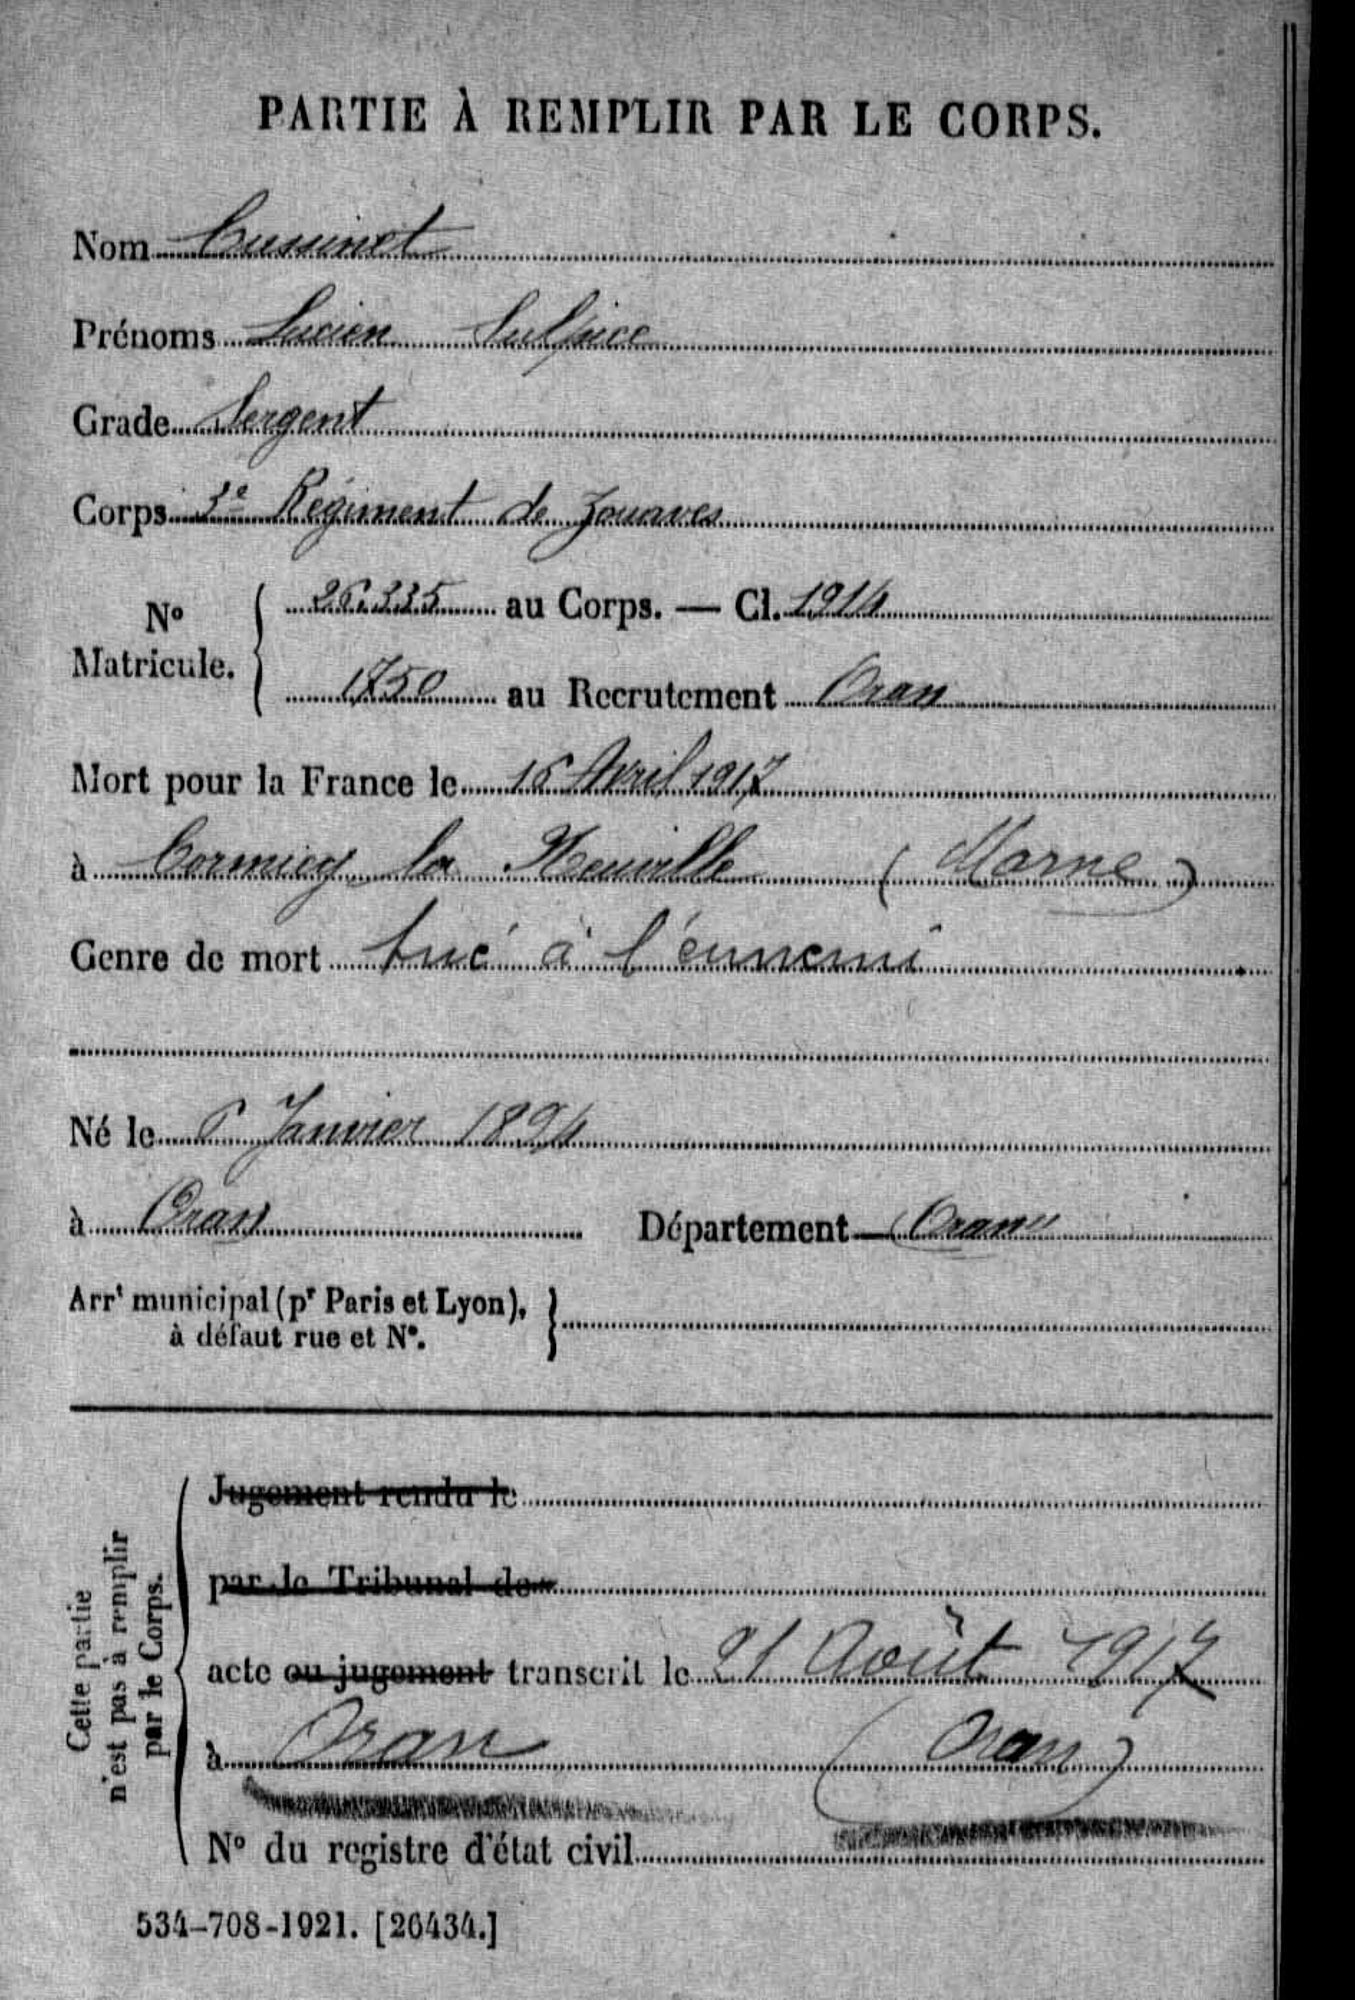 PARTIE À REMPLIR PAR LE CORPS.
Nom Cussinet
Prénoms Lucien Sulpice
Grade Sergent
Corps 3e Régiment de Zouaves
No Matricule. { 26.335 au Corps. — Cl. 1914
1750 au Recrutement Oran
Mort pour la France le 16 Avril 1917
à Cormicy la Neuville (Marne)
Genre de mort tué à l'ennemi
Né le 6 Janvier 1894
à Oran Département Oran
Arrt municipal (pr Paris et Lyon), }
à défaut rue et No.
Cette partie
n'est pas à remplir
par le Corps.
Jugement rendu le
par le Tribunal de
acte ou jugement transcrit le 21 Août 1917
à Oran (Oran)
No du registre d'état civil
534-708-1921. [26434.]